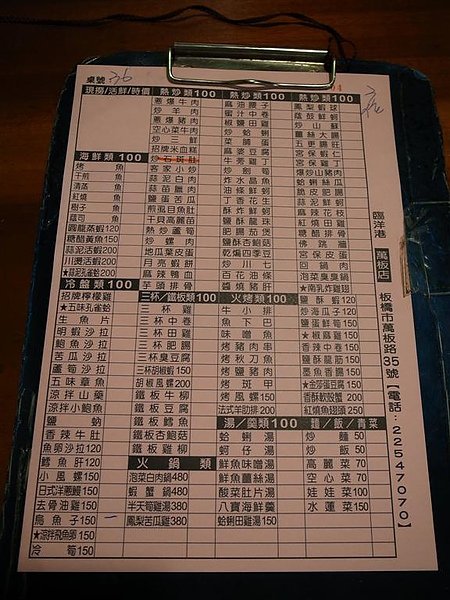 桌號 36
現撈/活鮮/時價
海鮮類100
烤 魚
干煎 魚
清蒸 魚
紅燒 魚
樹子 魚
蔭司 魚
圓龍蒸蝦120
糖醋黃魚150
蒜泥活蝦200
川燙活蝦200
★蒜泥孔雀蛤200
冷盤類100
招牌檸檬雞
★五味孔雀蛤
生魚片
明蝦沙拉
鮑魚沙拉
苦瓜沙拉
蘆筍沙拉
五味章魚
涼拌山藥
涼拌小鮑魚
鹽蚋
香辣牛肚
魚卵沙拉120
鱈魚肝120
小風螺150
日式洋蔥鰻150
去骨油雞150
烏魚子150
★涼拌飛魚卵150
冷筍150
熱炒類100
蔥爆牛肉
炒羊肉
蔥爆豬肉
空心菜牛肉
炒三鮮
招牌米血糕
炒石斑肚
客家小炒
蒜泥白肉
蒜苗臘肉
鹽酥魚蛋
煎虱目魚肚
干貝高麗苗
熱炒蘆筍
炒螺肉
地瓜葉皮蛋
月亮蝦餅
麻辣鴨血
芋頭排骨
三杯/鐵板類100
三杯雞
三杯中卷
三杯田雞
三杯肥腸
三杯臭豆腐
三杯胡椒蝦150
胡椒風螺200
鐵板牛柳
鐵板豆腐
鐵板鱈魚
鐵板杏鮑菇
鐵板雞柳
火鍋類
泡菜白肉鍋480
蝦蟹鍋480
半天筍雞湯380
鳳梨苦瓜雞380
熱炒類100
麻油腰子
蜜汁中卷
椒鹽田雞
炒蛤蜊
菜脯蛋
麻婆豆腐
牛蒡雞丁
炒劍筍
炸水晶魚
油條鮮蚵
丁香花生
酥炸鮮蚵
酥炸田雞
肥腸葉煲
鹽酥杏鮑菇
乾煸四季豆
炒川七
百花油條
鹽酥龍珠
鹽酥魷魚
火烤類100
牛小排
魚下巴
味噌魚
烤豬肉串
烤秋刀魚
烤鹽豬肉
烤斑甲
烤風螺150
法式羊肋排200
湯/羹類100
蛤蜊湯
蚵仔湯
鮮魚味噌湯
鮮魚薑絲湯
酸菜肚片湯
八寶海鮮羹
蛤蜊田雞湯150
熱炒類100
鳳梨蝦球
蔭鼓鮮蚵
炒山蘇
薑絲大腸
五更腸旺
宮保蝦仁
宮保雞丁
爆炒山豬肉
蛤蜊絲瓜
脆皮肥腸
鹹酥蝦
麻辣花枝
紅燒田雞
糖醋排骨
佛跳牆
宮保皮蛋
回鍋肉
泡菜臭臭鍋
★南乳炸雞翅
鹽酥蝦120
炒海瓜子120
鹽蛋鮮筍150
★椒麻雞150
香辣中卷150
鹽酥龍筋150
墨魚香腸150
★金莎蛋豆腐150
香酥軟殼蟹200
紅燒魚翅蹄250
麵/飯/青菜
炒麵50
炒飯50
高麗菜70
空心菜70
娃娃菜100
水蓮菜150
臨洋港 萬板店 板橋市萬板路35號【電話：22547070】